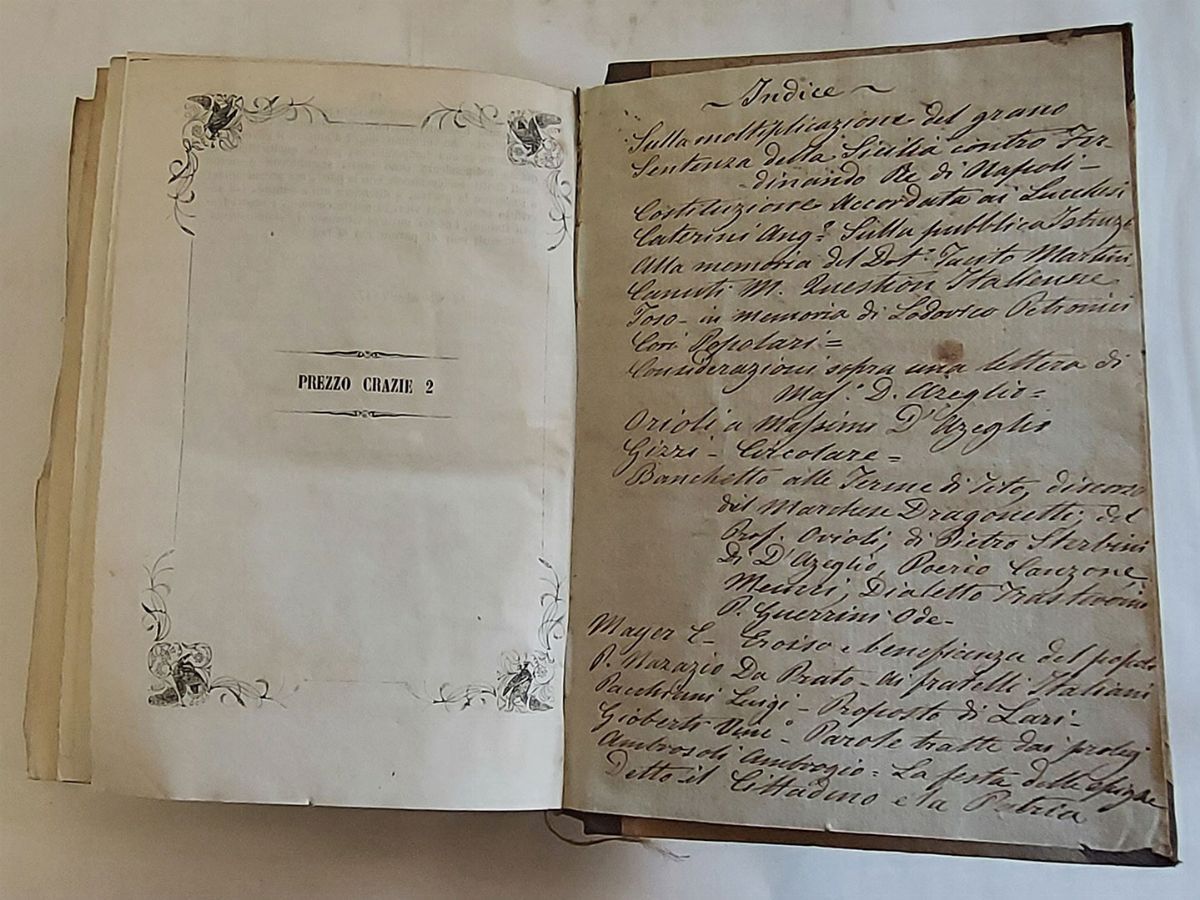 PREZZO CRAZIE 2
~ Indice ~
Sulla moltiplicazione del grano
Sentenza della Sicilia contro Fer-
dinando Re di Napoli -
Costituzione Accordata ai Lucchesi
Caterini Ang.º Sulla pubblica Istruz.e
Alla memoria del Dot.r Tacito Martini
Canuti M. Question Italienne
Toso - in memoria di Lodovico Petronici
Cori Popolari =
Considerazioni sopra una lettera di
Mas.º D. Azeglio =
Orioli a Massimo D'Azeglio
Gizzi - Circolare =
Banchetto alle Terme di Tito, discorso
del Marchese Dragonetti, del
Prof. Orioli, di Pietro Sterbini
di D'Azeglio, Poerio Canzone,
Meucci, Dialetto
P. Guerrini Ode -
Mayer E - beneficenza del popolo
P. Da Prato - ai fratelli Italiani
Pacchiani Luigi - Proposto di Lari -
Gioberti Vin.º - Parole tratte dai proleg
Ambrosoli Ambrogio = La festa delle spighe
Detto il Cittadino e la Patria